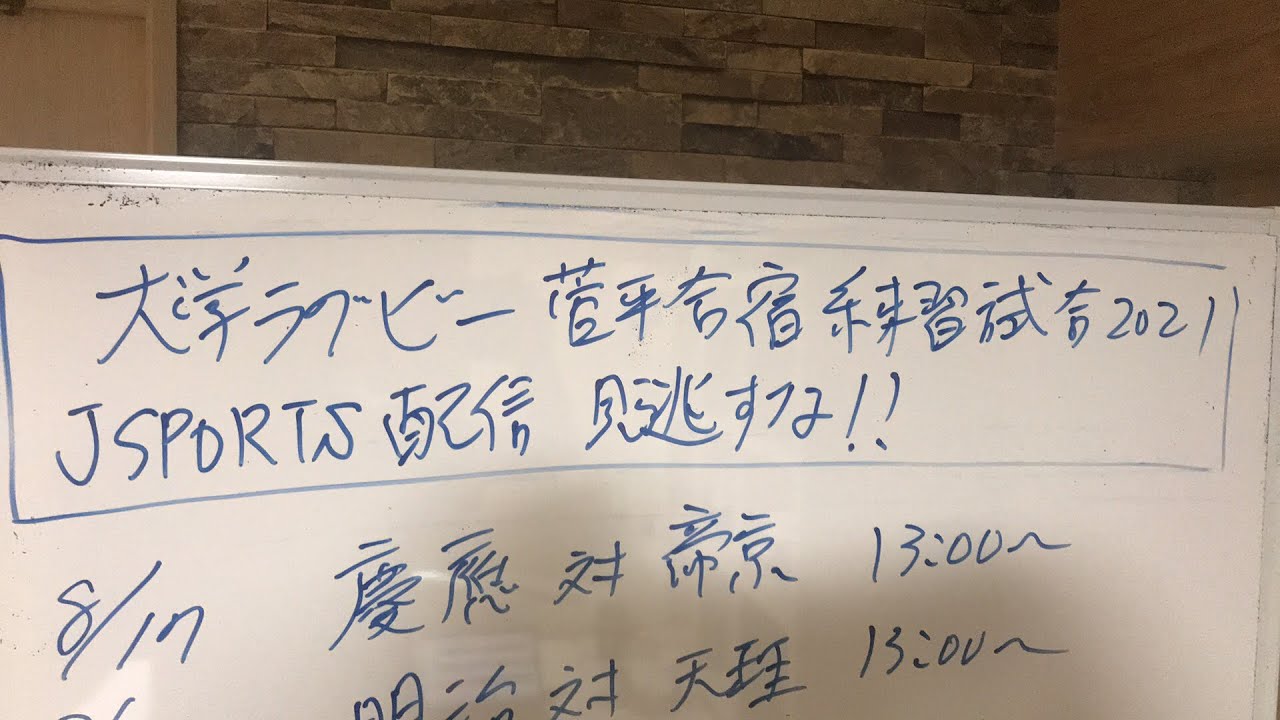 大学ラグビー 菅平合宿練習試合2021
JSPORTS 配信 見逃すな!!
8/17 慶應 対 帝京 13:00~
明治 対 天理 13:00~